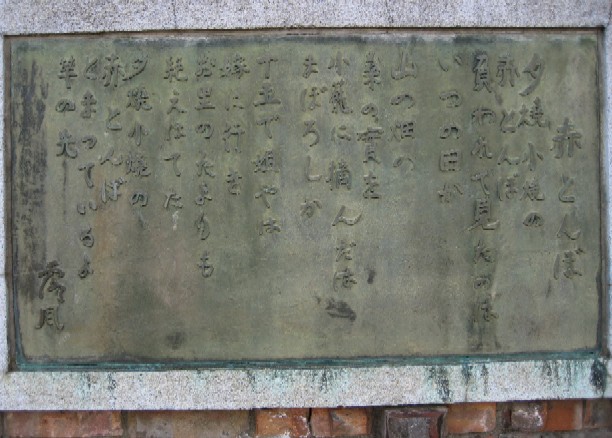 赤とんぼ
夕焼小焼の
赤とんぼ
負われて見たのは
いつの日か
山の畑の
桑の實を
小籠に摘んだは
まぼろしか
十五で姐やは
嫁に行き
お里のたよりも
絶えはてた
夕焼小焼の
赤とんぼ
とまっているよ
竿の先
露風